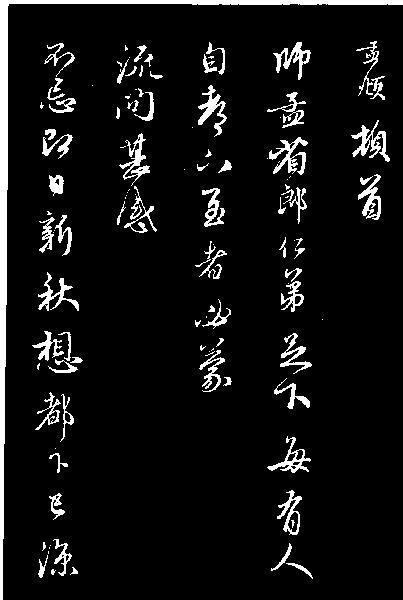 孟頫頓首
師孟省郎仁弟足下每有人
自都下至者必蒙
流問甚感
不忘即日新秋想都下已涼